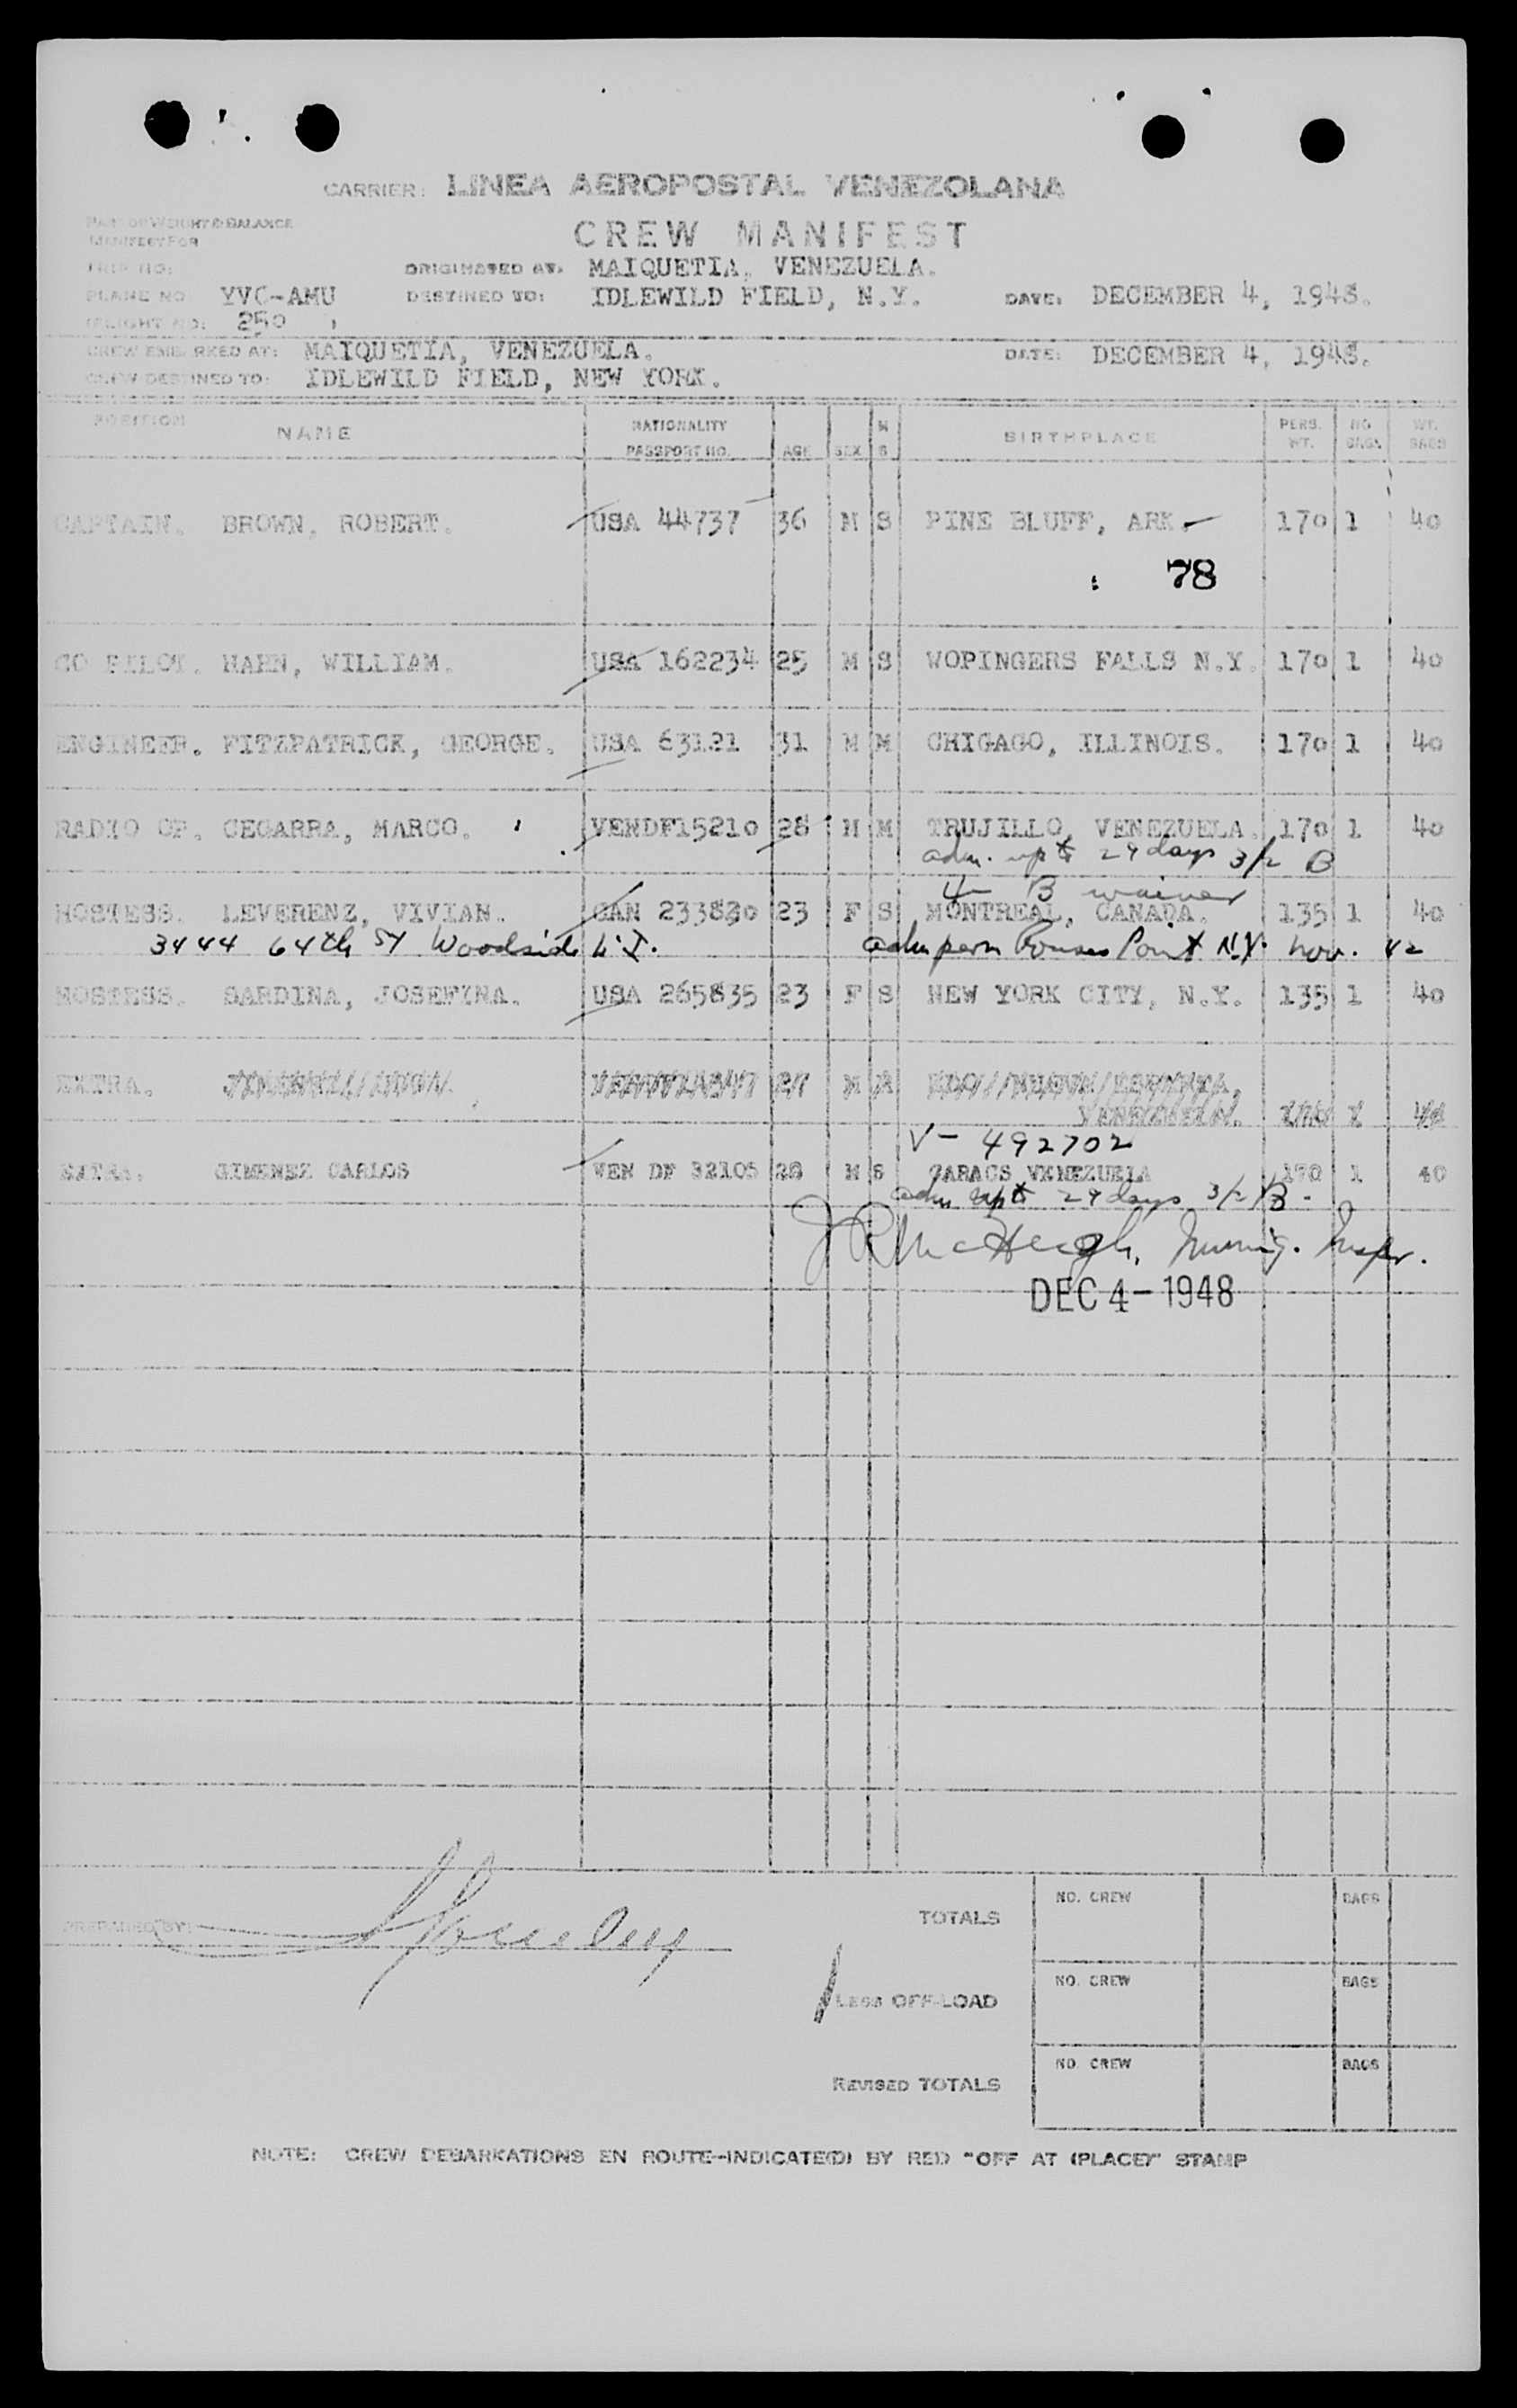 CARRIER: LINEA AEROPOSTAL VENEZOLANA
PART OF WEIGHT & BALANCE
MANIFEST FOR
CREW MANIFEST
TRIP NO:
ORIGINATED AT: MAIQUETIA, VENEZUELA.
PLANE NO YVC-AMU DESTINED TO: IDLEWILD FIELD, N.Y. DATE: DECEMBER 4, 1948.
FLIGHT NO: 250
CREW EMBARKED AT: MAIQUETIA, VENEZUELA. DATE: DECEMBER 4, 1948.
CREW DESTINED TO: IDLEWILD FIELD, NEW YORK.
POSITION NAME NATIONALITY PASSPORT NO. AGE SEX M S BIRTHPLACE PERS. WT. NO. BAGS WT. BAGS
CAPTAIN. BROWN, ROBERT. USA 44737 36 M S PINE BLUFF, ARK. 170 1 40
78
CO PILOT. HAHN, WILLIAM. USA 162234 25 M S WOPINGERS FALLS N.Y. 170 1 40
ENGINEER. FITZPATRICK, GEORGE. USA 63121 31 M M CHIGAGO, ILLINOIS. 170 1 40
RADIO OP. CEGARRA, MARCO. VENDF15210 28 M M TRUJILLO, VENEZUELA. 170 1 40
adm. up to 29 days 3/2 B
4- B waiver
HOSTESS. LEVERENZ, VIVIAN. CAN 233830 23 F S MONTREAL, CANADA. 135 1 40
3444 64th St Woodside L.I. adm perm Rouses Point N.Y. Nov. 42
HOSTESS. SARDINA, JOSEFINA. USA 265835 23 F S NEW YORK CITY, N.Y. 135 1 40
EXTRA. 27 M
V- 492702
EXTRA. GIMENEZ CARLOS VEN DF 32105 28 M S CARACS VENEZUELA 170 1 40
adm up to 29 days 3/2 B-
J R McHeogh, Immig. Inspr.
DEC 4 - 1948
PREPARED BY:
TOTALS NO. CREW BAGS
LESS OFF-LOAD NO. CREW BAGS
REVISED TOTALS NO. CREW BAGS
NOTE: CREW DEBARKATIONS EN ROUTE-INDICATE(D) BY RED "OFF AT (PLACE)" STAMP